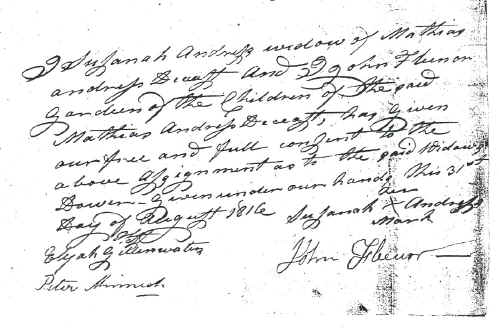 I Susanah Andress widow of Mathias
andress Deceast And I John
Gardeen of the Children of the said
Mathias Andress Deceast, has given
our free and full consent to the
above assignment as to the said Widows
Dower - Given under our hands this 31st
Day of August 1816 Susanah X Andress
her
Mark
Test
Elijah Gillenwaters John
Peter